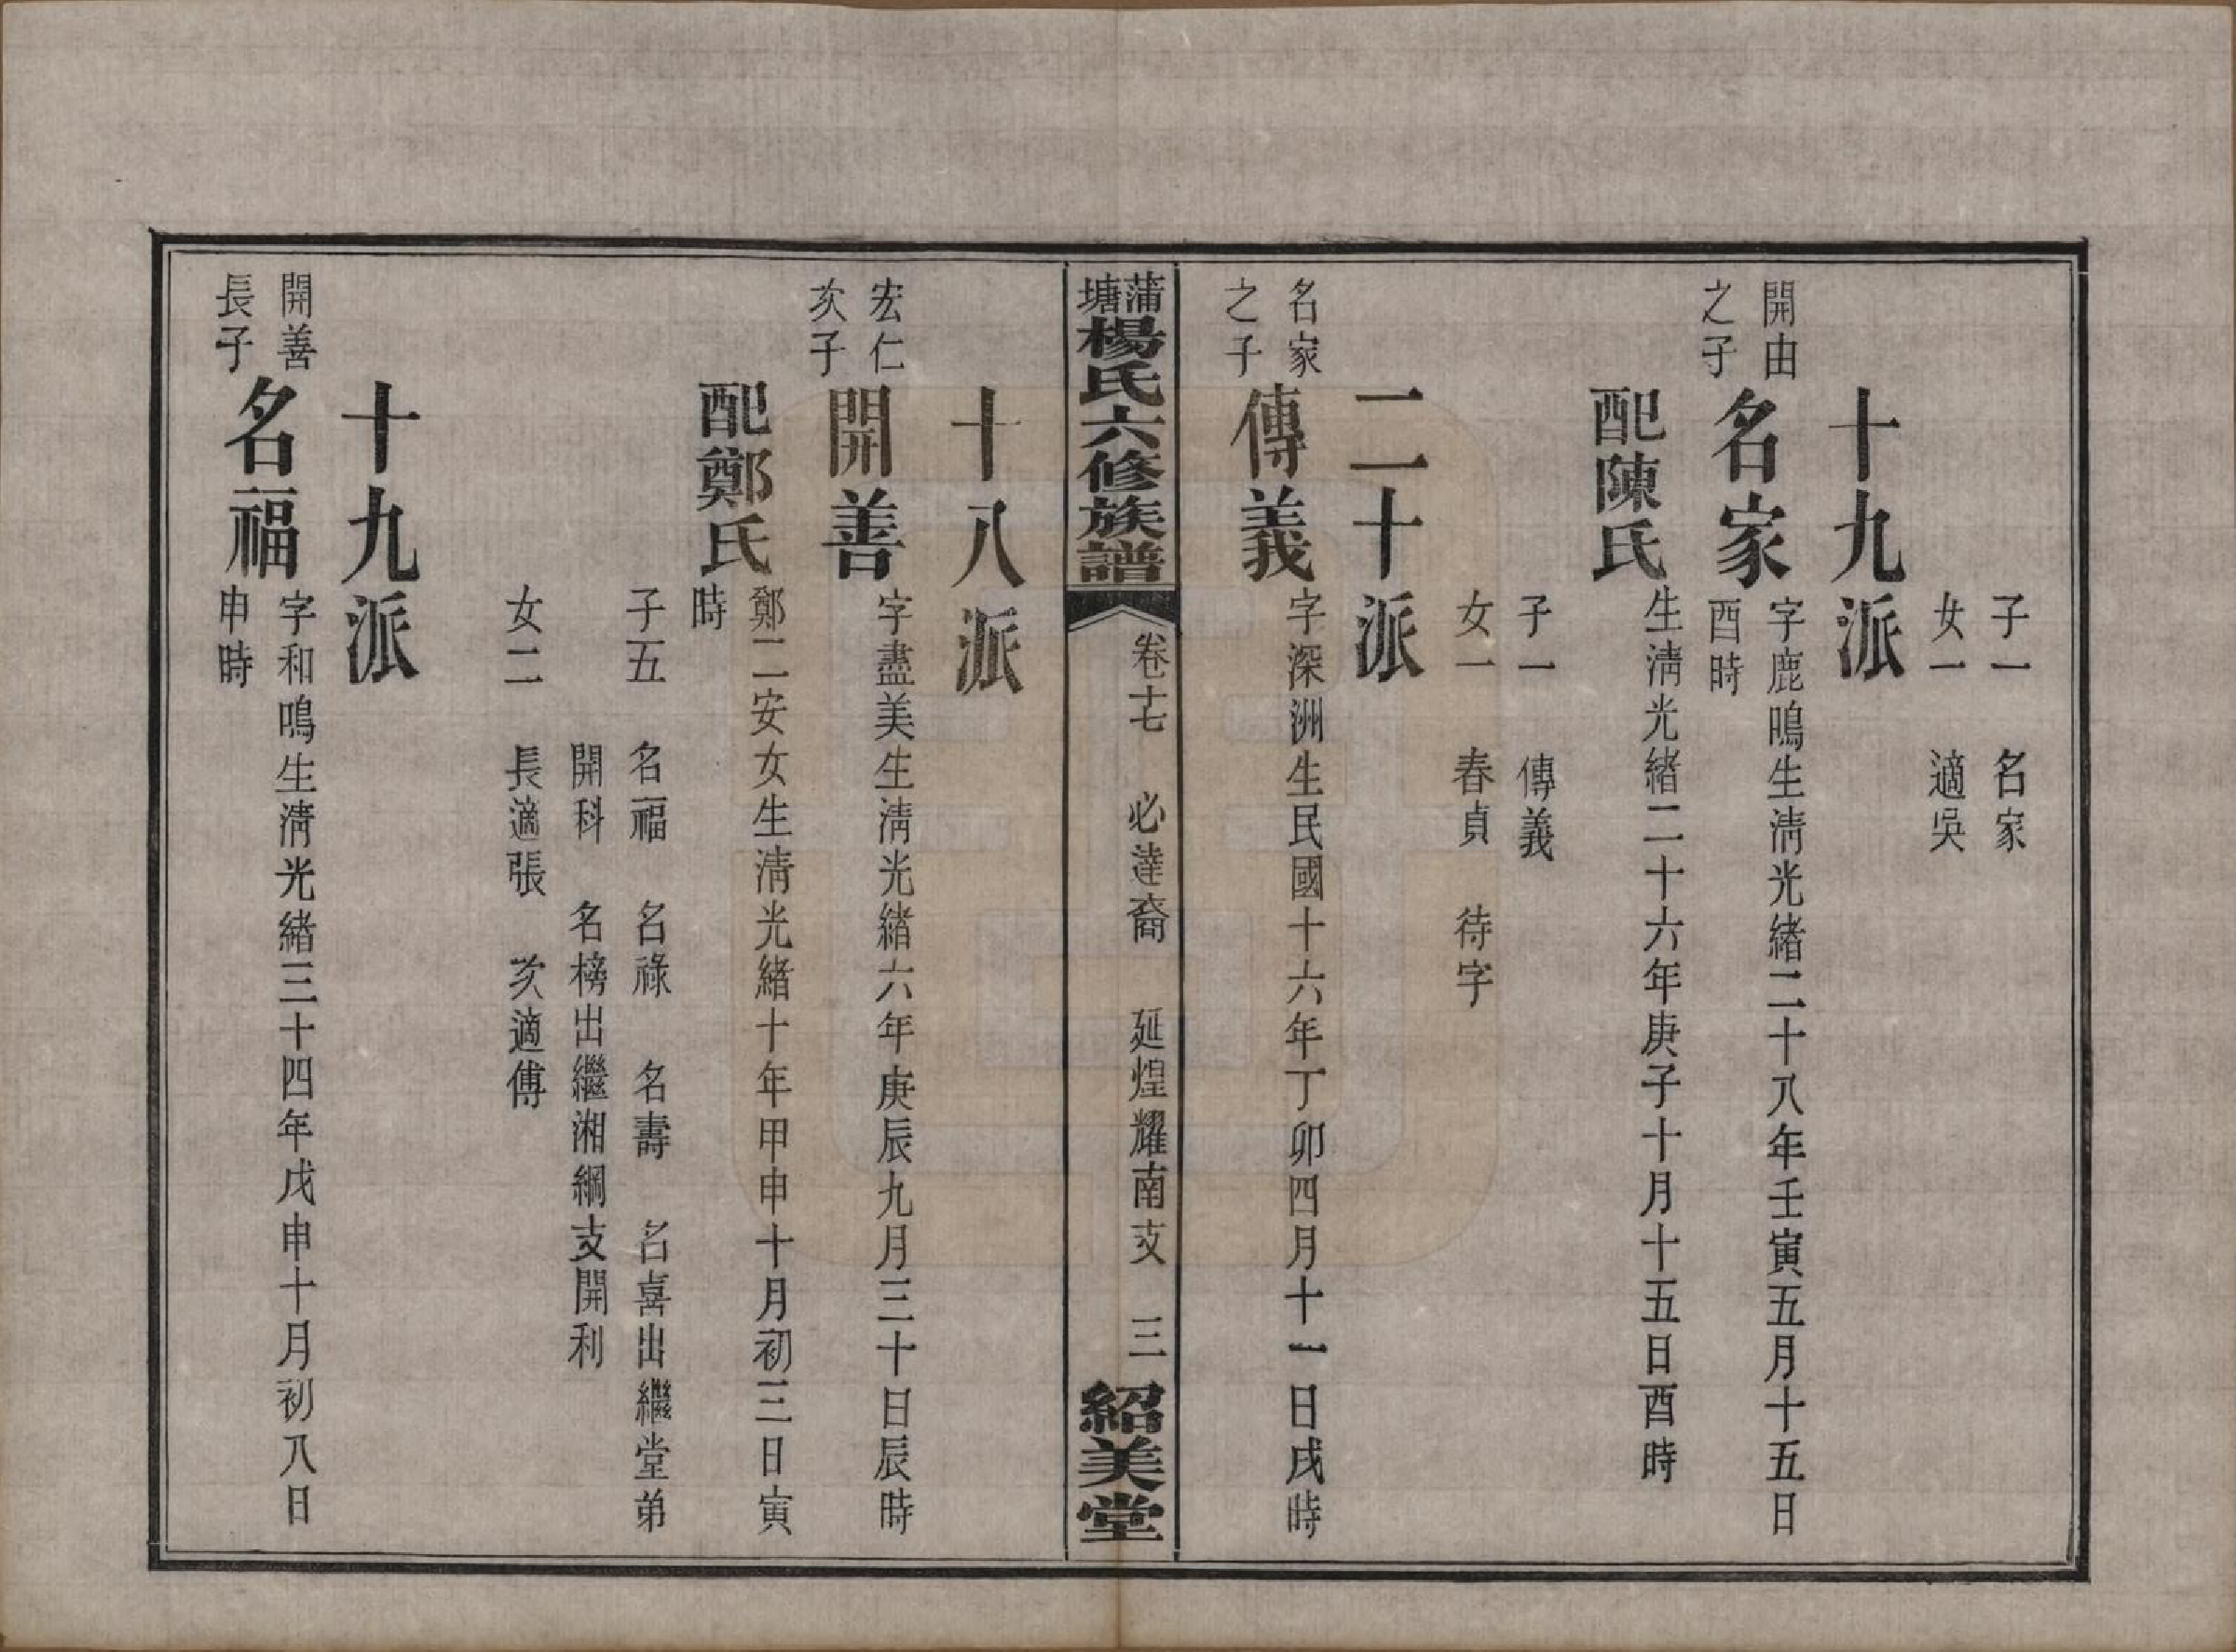 子一　名家
女一　適吳
十九派
開由之子
名家
字鹿鳴生清光緒二十八年壬寅五月十五日
酉時
配陳氏
生清光緒二十六年庚子十月十五日酉時
子一　傳義
女一　春貞　待字
二十派
名家之子
傳義
字深洲生民國十六年丁卯四月十一日戌時
蒲塘楊氏六修族譜
卷十七　必達裔　延煌耀南支　三
紹美堂
十八派
宏仁次子
開善
字盡美生清光緒六年庚辰九月三十日辰時
配鄭氏
鄭二安女生清光緒十年甲申十月初三日寅
時
子五　名福　名祿　名壽　名喜出繼堂弟
開科　名榜出繼湘綱支開利
女二　長適張　次適傅
十九派
開善長子
名福
字和鳴生清光緒三十四年戊申十月初八日
申時